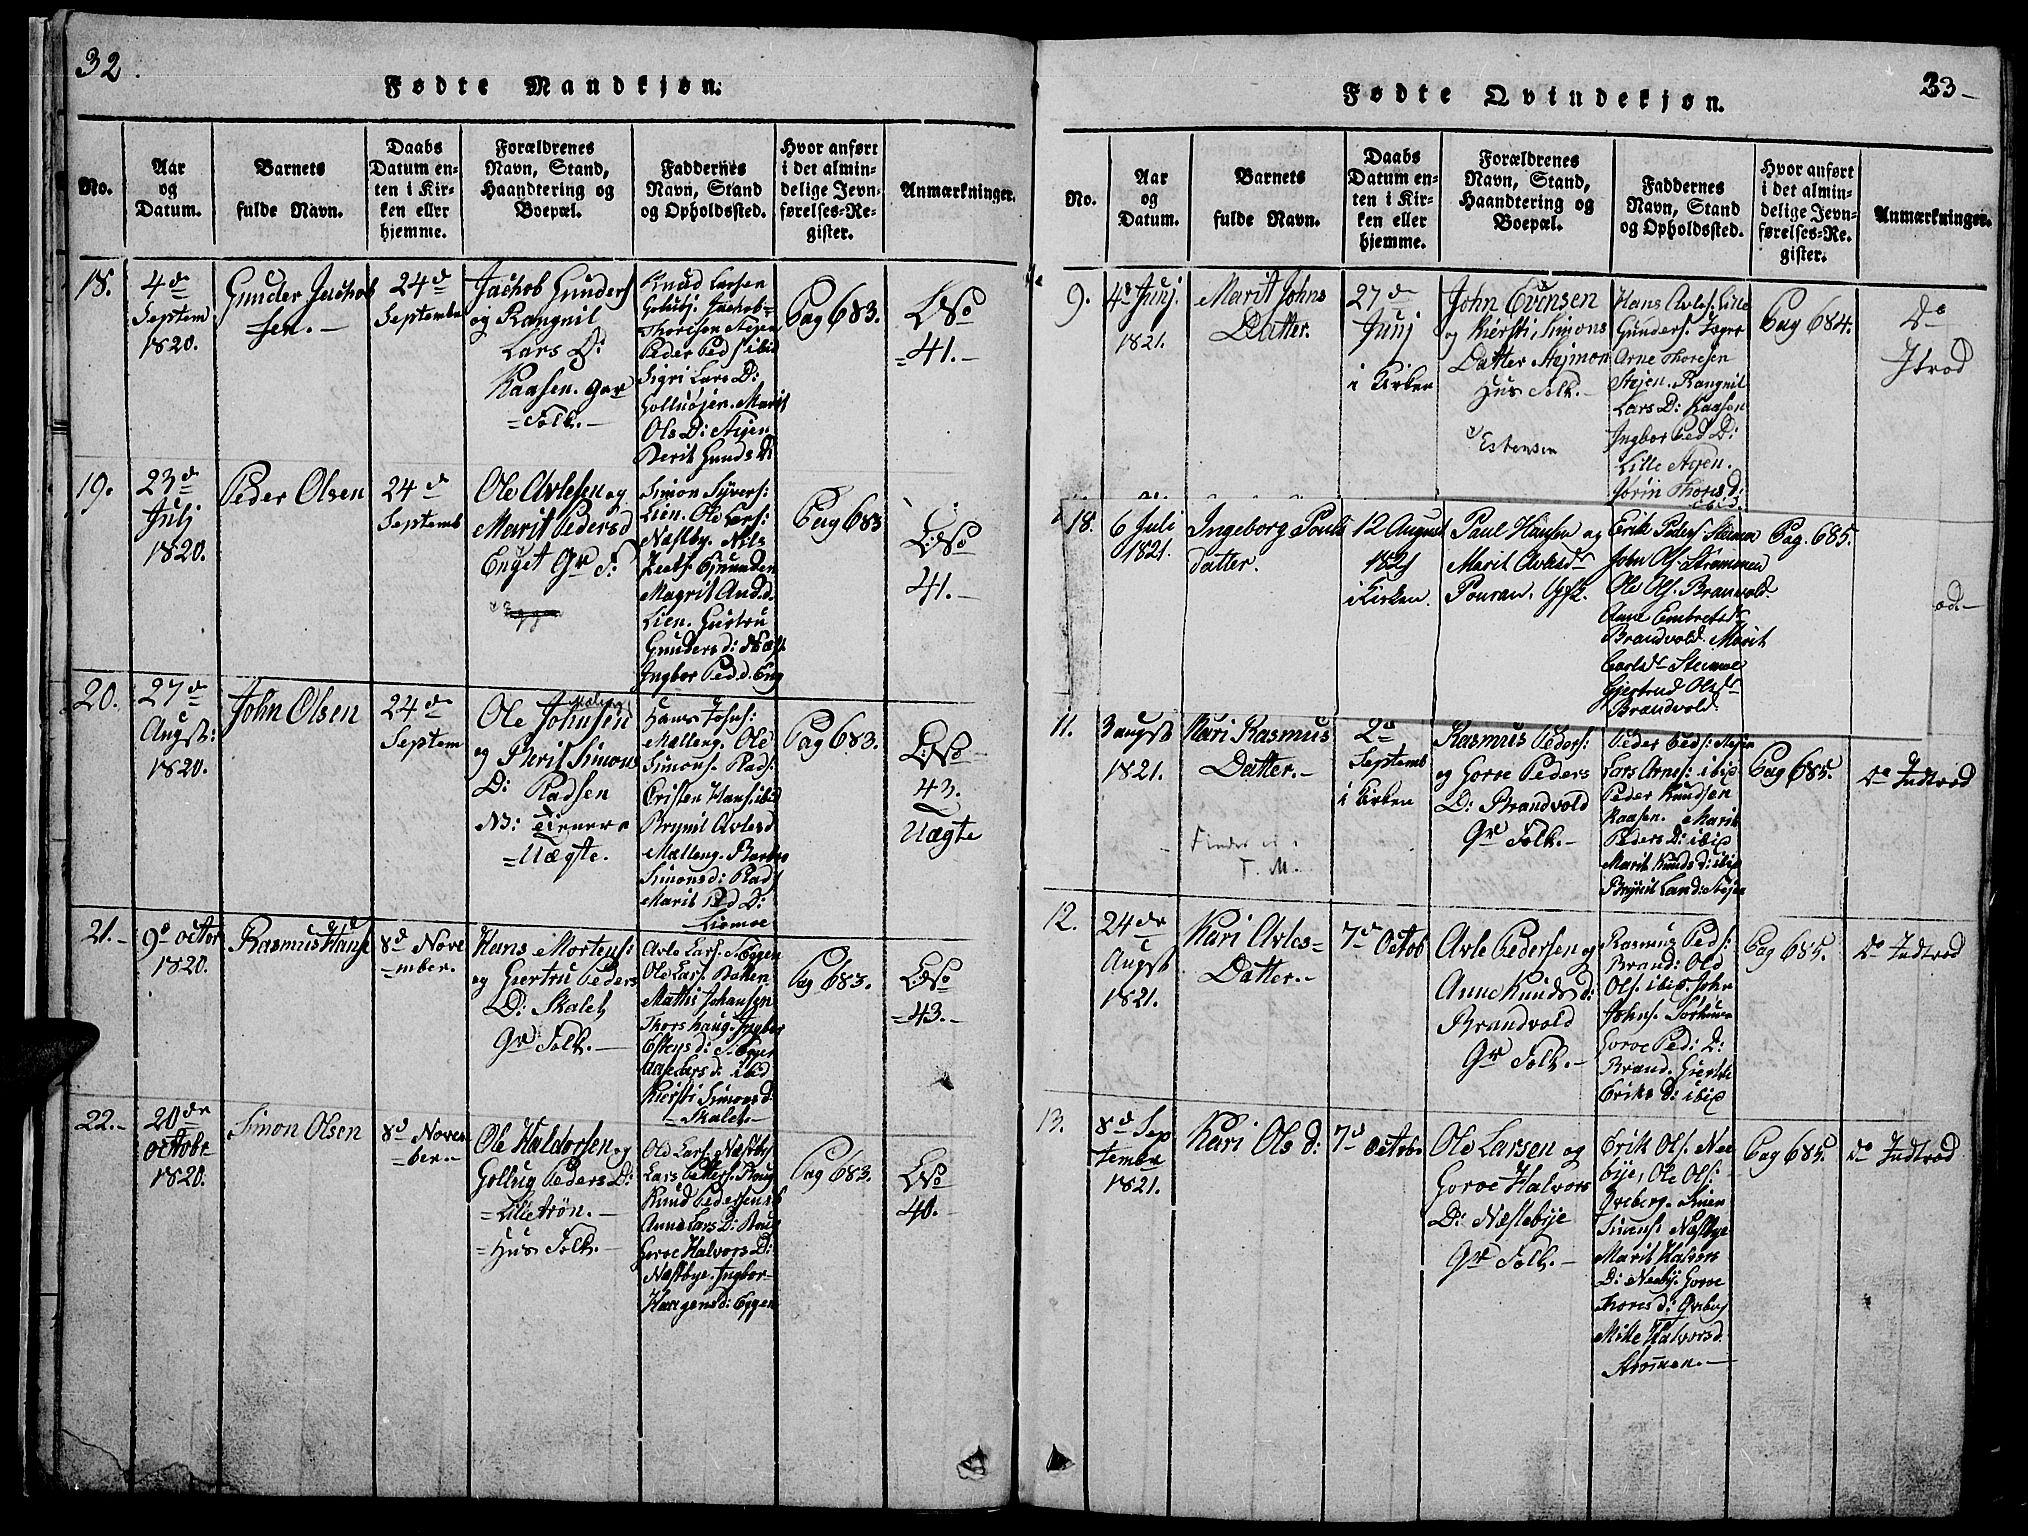 32.
Fødte Mandkjøn.
No.
Aar
og
Datum.
Barnets
fulde Navn.
Daabs
Datum en-
ten i Kir-
ken eller
hjemme.
Forældrenes
Navn, Stand,
Haandtering og
Boepæl.
Faddernes
Navn, Stand
og Opholdssted.
Hvor anført
i det almin-
delige Jevn-
førelses-Re-
gister.
Anmærkninger.
18.
4de
Septem
1820.
Gunder Jachob
sen.-
24de
Septembr
Jachob Gunders
og Rangnil
Lars D:
Kaasen. Gar
=Folk.-
Knud Larsen
Thoresen
Peder Peds ibid
Sigri Lars D:
Marit
Ols D: Stejen
Berit Gunds D:
Pag 683.
LNo
=41.-
19.
23de
Julj
1820.
Peder Olsen
24de
Septemb
Ole Avlesen og
Marit Peders d
Enget Gr F:
Simon Syvers:
Lien. Ole Lars:
Næstby. Nils
Magrit And.d.
Lien. Gurtru
Gunders d: Næst
Ingbor Ped.d. Eng
Pag 683
LNo
41.-
20.
27de
Augst:
1820.
John Olsen
24de
Septem
Ole Johnsen
og Berit Simons
D: Radsen
NB: tienere
=Uægte.
Hans Johs:
Mælleng. Ole
Simons. Rads:
Cristen Hans ibid
Brynil Avles d
Mælleng. Barbro
Simons d: Rads
Marit Ped D:
Liemoe
Pag 683.
LNo
43.
Uægte
21.-
9de octor
1820.
Rasmus Hans
8d Nove
=mber.-
Hans Mortens:
og Giertru Peders
D: Skalet
Gr Folk.-
Avle Lars. Eggen
Ole Lars. Bakken
Mathis Johansen
Thorshaug. Ingbor
Estens d: Eggen
Aase Lars d: ibid
Kiersti Simons d:
Skalet.-
Pag 683.
LNo
=43.-
22.-
20de
octobr
1820.
Simon Olsen
8d Novem
=ber.-
Ole Haldorsen og
Gollug Peders D:
=Lilletrøn.-
=Hus Folk.-
Ole Lars. Næstby
Lars Petters.
Knud Pedersen
Anne Lars D:
Goroe Halvors D:
Næstbye. Ingbor
Haagens d: Eggen
Pag 683.
LNo
40.-
33-
Fødte Qvindekjøn.
No.
Aar
og
Datum.
Barnets
fulde Navn.
Daabs
Datum en-
ten i Kir-
ken eller
hjemme.
Forældrenes
Navn, Stand,
Haandtering og
Boepæl.
Faddernes
Navn, Stand
og Opholdssted.
Hvor anført
i det almin-
delige Jevn-
førelses-Re-
gister.
Anmærkninger.
9.
4d Junj.
1821.
Marit Johns
Datter.
27de
Junj
i Kirken
John Evensen
og Kiersti Simons
Datter Stejmon
Hus Folk.-
Estensen
Hans Avles. Lille
Gunders.
Arne Thoresen
Stejen. Rangnil
Lars D: Kaasen
Ingbor Ped D:
Lille Stejen.
Jørin Thores d:
ibid.
Pag 684.
Do
18.
6 Juli
1821.
Ingeborg Pouls
datter.
12 August
1821
i Kirken.
Paul Hansen og
Marit Avlesdr
Erik Peders Steimoe
John Ols. Strømmen
Ole Ols. Brandvold.
Anne Embretsdr
Brandvold. Marit
Carlsdr Steimoe
Gjertrud Olsdr
Brandvold.
Pag. 685.
od.-
11.
3 augst
1821.
Kari Rasmus
Datter.-
Findes ei i
F. M.
2d
Septemb
i Kirken
Rasmus Peders:
og Goroe Peders
D: Brandvold
Gr Folk.-
Peder Peds: Stejen
Lars Arnes: ibid
Peder Knudsen
Kaasen. Marit
Peders D: ibid
Marit Knuds d: ibid
Pag 685.
Do Indtrød
12.
24de
Augst
1821.
Kari Avles=
Datter.-
7de Octob
Avle Pedersen og
Anne Knuds d:
Brandvold
Gr Folk.-
Rasmus Peds:
Brand: Ole
Ols. ibid. John
Johns.
Goroe Ped: D:
Brand. Giertru
Eriks D: ibid
Pag 685.
Do Indtrød
13.
8d Sep
tembr
1821.
Kari Ols d:
7d Octob.
Ole Larsen og
Goroe Halvors
D: Næstebye
Gr Folk.-
Erik Ols. Nee
bye, Ole Ols:
Qveberg. Simen
Simens. Næstbye
Marit Halvors
D: Neeby. Goroe
Thores d: Qveberg
Mille Halvors d.
Strømmen.-
Pag 685.
do Indtrød